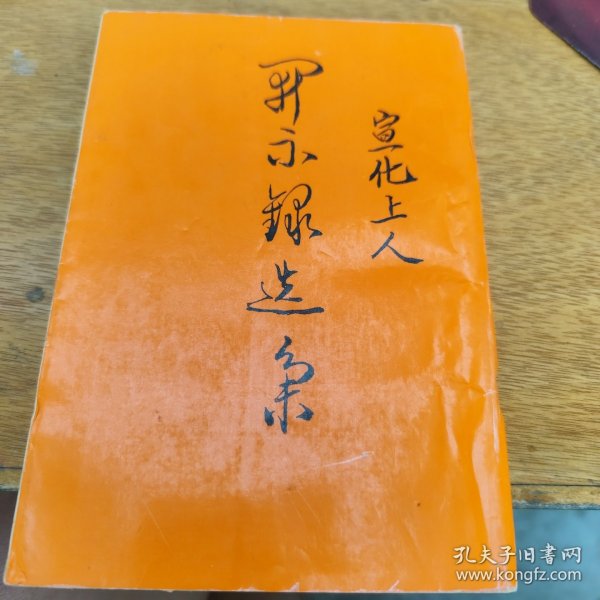 宣化上人
开示录选集
孔夫子旧书网
www.kongfz.com